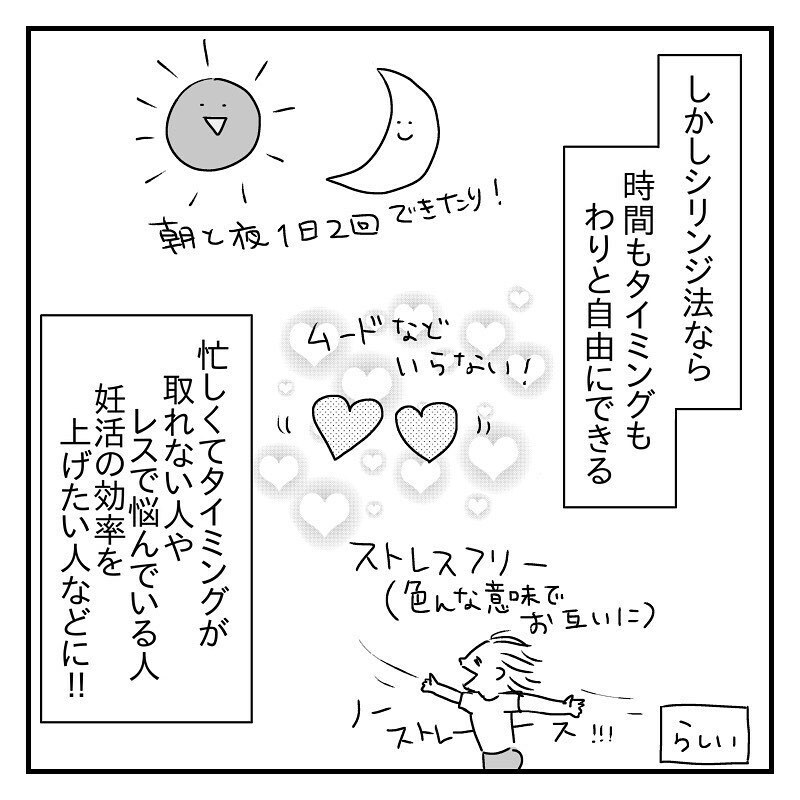 しかしシリンジ法なら
時間もタイミングも
わりと自由にできる
朝と夜1日2回できたり！
ムードなど
いらない！
忙しくてタイミングが
取れない人や
レスで悩んでいる人
妊活の効率を
上げたい人などに!!
ストレスフリー
（色んな意味で
お互いに）
ノー
ストレース!!!
らしい